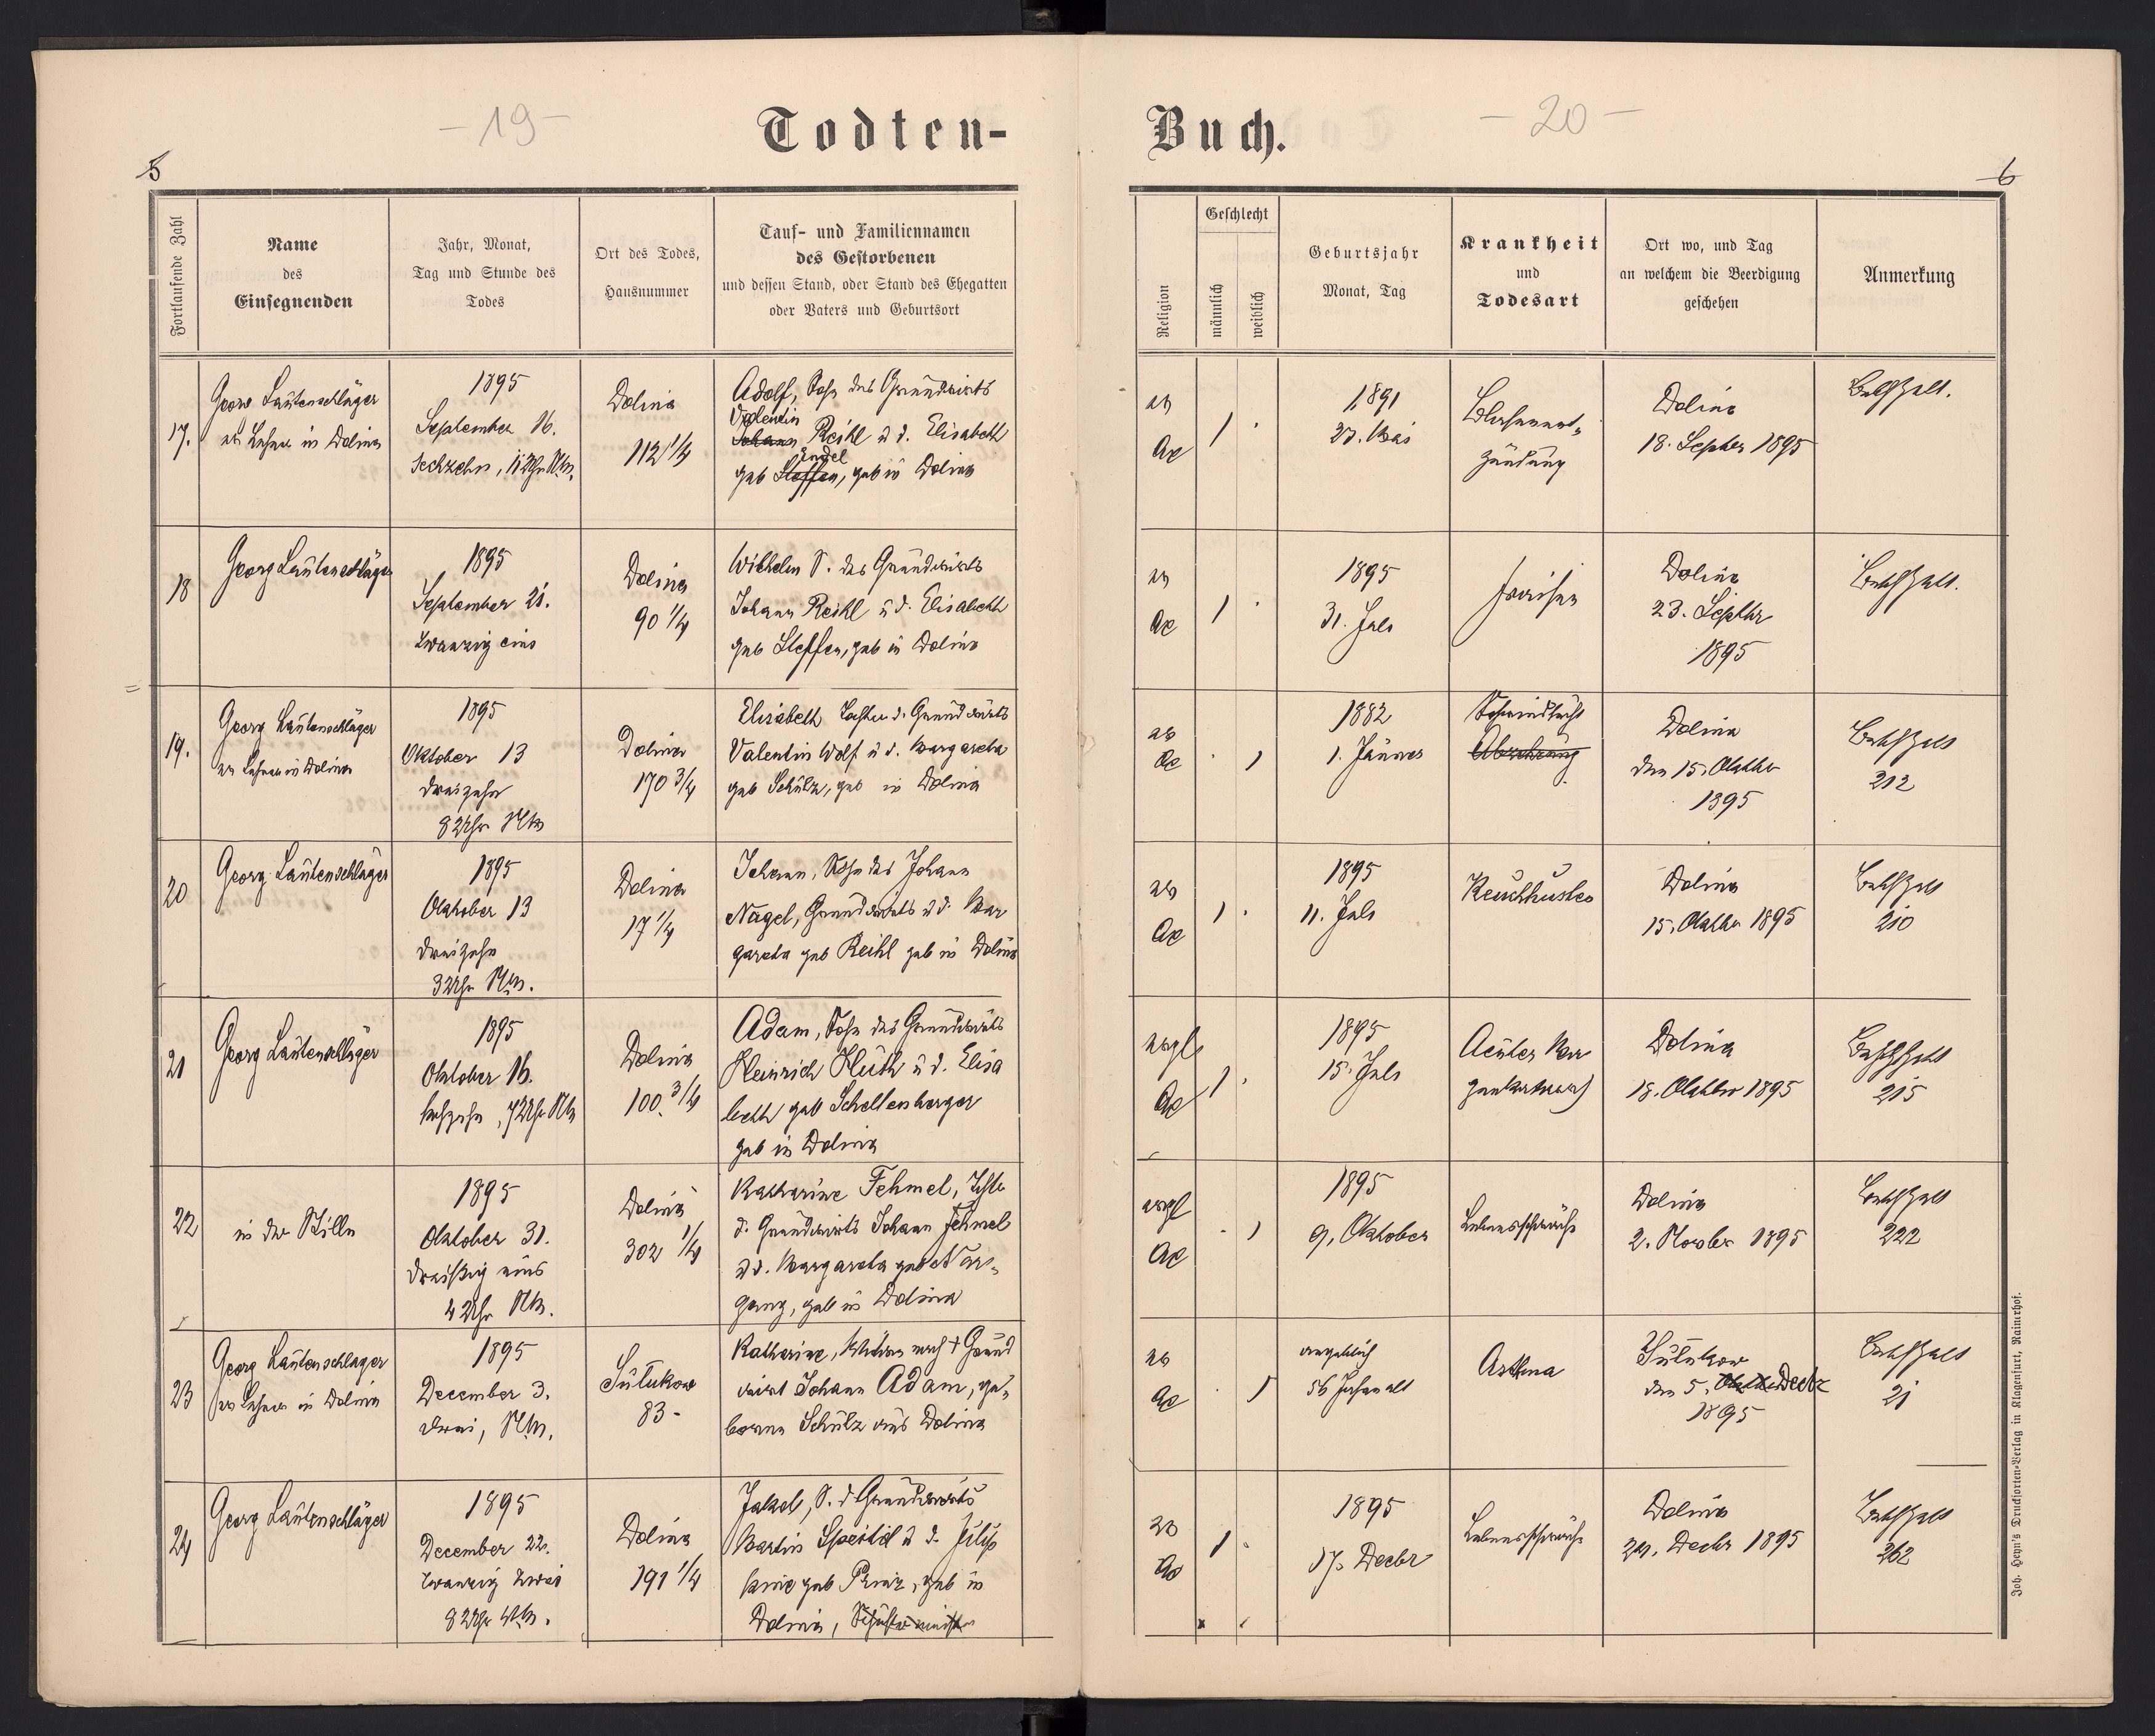 - 19 -
Todten-
5
Fortlaufende Zahl
Name
des
Einsegnenden
Jahr, Monat,
Tag und Stunde des
Todes
Ort des Todes,
Hausnummer
Tauf- und Familiennamen
des Gestorbenen
und dessen Stand, oder Stand des Ehegatten
oder Vaters und Geburtsort
17.
Georg Lautenschläger
ev Lehrer in Dolina
1895
September 16.
sechzehn, Uhr Nm.
Dolina
112 1/4
Adolf, Sohn des Grundwirts
Valentin
Johann Reihl u d. Elisabeth
Engel
geb Steffen, geb in Dolina
18
Georg Lautenschläger
1895
September 21.
zwanzig eins
Dolina
90 1/4
Wilhelm S. des Grundwirts
Johann Reihl u d. Elisabeth
geb Steffen, geb in Dolina
19.
Georg Lautenschläger
ev Lehrer in Dolina
1895
Oktober 13
dreizehn
8 Uhr Nm
Dolina
170 3/4
Elisabeth Tochter d. Grundwirts
Valentin Wolf u d. Margaretha
geb Schülz, geb in Dolina
20
Georg Lautenschläger
1895
Oktober 13
dreizehn
3 Uhr Nm.
Dolina
17 1/4
Johann, Sohn des Johann
Nagel, Grundwirts u d. Mar
garetha geb Reihl geb in Dolina
21
Georg Lautenschläger
1895
Oktober 16.
sechzehn, 7 Uhr Nm
Dolina
100. 3/4
Adam, Sohn des Grundwirts
Heinrich Huth u d. Elisa
beth geb Schellenberger
geb in Dolina
22
in der Stille
1895
Oktober 31.
dreißig eins
4 Uhr Nm.
Dolina
302 1/4
Katharine Fehmel, Tchtr
d. Grundwirts Johann Fehmel
u d. Margaretha geb
gang, geb in Dolina
23
Georg Lautenschläger
ev Lehrer in Dolina
1895
December 3.
drei, Nm.
Sulukow
83 -
Katharine, Witwe nach + Grund
wirt Johann Adam, ge-
borene Schülz aus Dolina
24
Georg Lautenschläger
1895
December 22.
zwanzig zwei
8 Uhr Nm.
Dolina
191 1/4
Jakob, S. d Grundwirts
Martin Speitel u d.
geb Prinz, geb in
Dolina,
Buch.
- 20 -
6
Religion
Geschlecht
männlich
weiblich
Geburtsjahr
Monat, Tag
Krankheit
und
Todesart
Ort wo, und Tag
an welchem die Beerdigung
geschehen
Anmerkung
ev
AC
1
1891
27. Mai
zündung
Dolina
18. Septber 1895
ev
AC
1
1895
31. Juli
Fraisen
Dolina
23. Septbr
1895
ev
AC
1
1882
1. Jänner
Schwindsucht
Abzehrung
Dolina
den 15. Oktbr
1895
212
ev
AC
1
1895
11. Juli
Keuchhusten
Dolina
15. Oktbr 1895
210
evgl
AC
1
1895
15. Juli
Acuter Ma
genkatarrh
Dolina
18. Oktbr 1895
215
evgl
AC
1
1895
9. Oktober
Lebensschwäche
Dolina
2. Novbr 1895
222
ev
AC
1
angeblich
56 Jahre alt
Asthma
Sulukow
den 5. Decbr
1895
21
ev
AC
1
1895
17. Decbr
Lebensschwäche
Dolina
24. Decbr 1895
262
Joh. Heyn's Drucksorten-Verlag in Klagenfurt, Rainerhof.